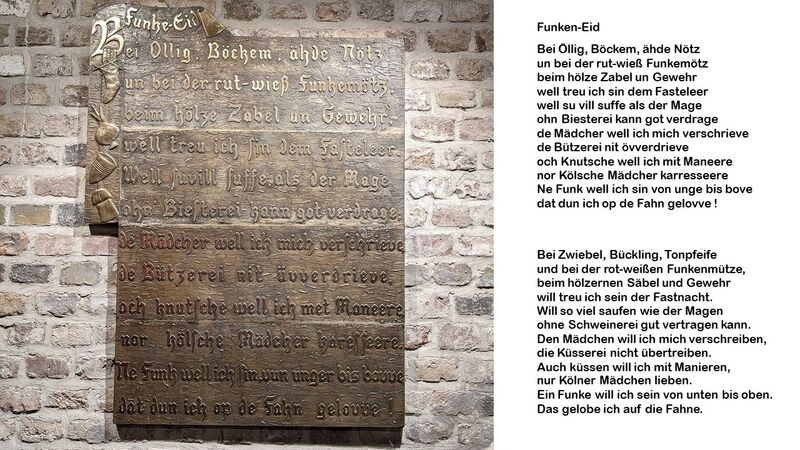 Funke-Eid
Bei Öllig, Böckem, ähde Nötz
un bei der rut-wieß Funkemötz.
beim hölze Zabel un Gewehr,
well treu ich sin dem Fasteleer.
Well suvill suffe, als der Mage
ohn' Biesterei kann got verdrage.
de Mädcher well ich mich verschrieve
de Bützerei nit övverdrieve,
och knutsche well ich met Maneere
nor kölsche Mädcher karesseere.
Ne Funk well ich sin, vun unger bis bovve
dat dun ich op de Fahn gelovve !
Funken-Eid
Bei Öllig, Böckem, ähde Nötz
un bei der rut-wieß Funkemötz
beim hölze Zabel un Gewehr
well treu ich sin dem Fasteleer
well su vill suffe als der Mage
ohn Biesterei kann got verdrage
de Mädcher well ich mich verschrieve
de Bützerei nit övverdrieve
och Knutsche well ich mit Maneere
nor Kölsche Mädcher karresseere
Ne Funk well ich sin von unge bis bove
dat dun ich op de Fahn gelovve !
Bei Zwiebel, Bückling, Tonpfeife
und bei der rot-weißen Funkenmütze,
beim hölzernen Säbel und Gewehr
will treu ich sein der Fastnacht.
Will so viel saufen wie der Magen
ohne Schweinerei gut vertragen kann.
Den Mädchen will ich mich verschreiben,
die Küsserei nicht übertreiben.
Auch küssen will ich mit Manieren,
nur Kölner Mädchen lieben.
Ein Funke will ich sein von unten bis oben.
Das gelobe ich auf die Fahne.